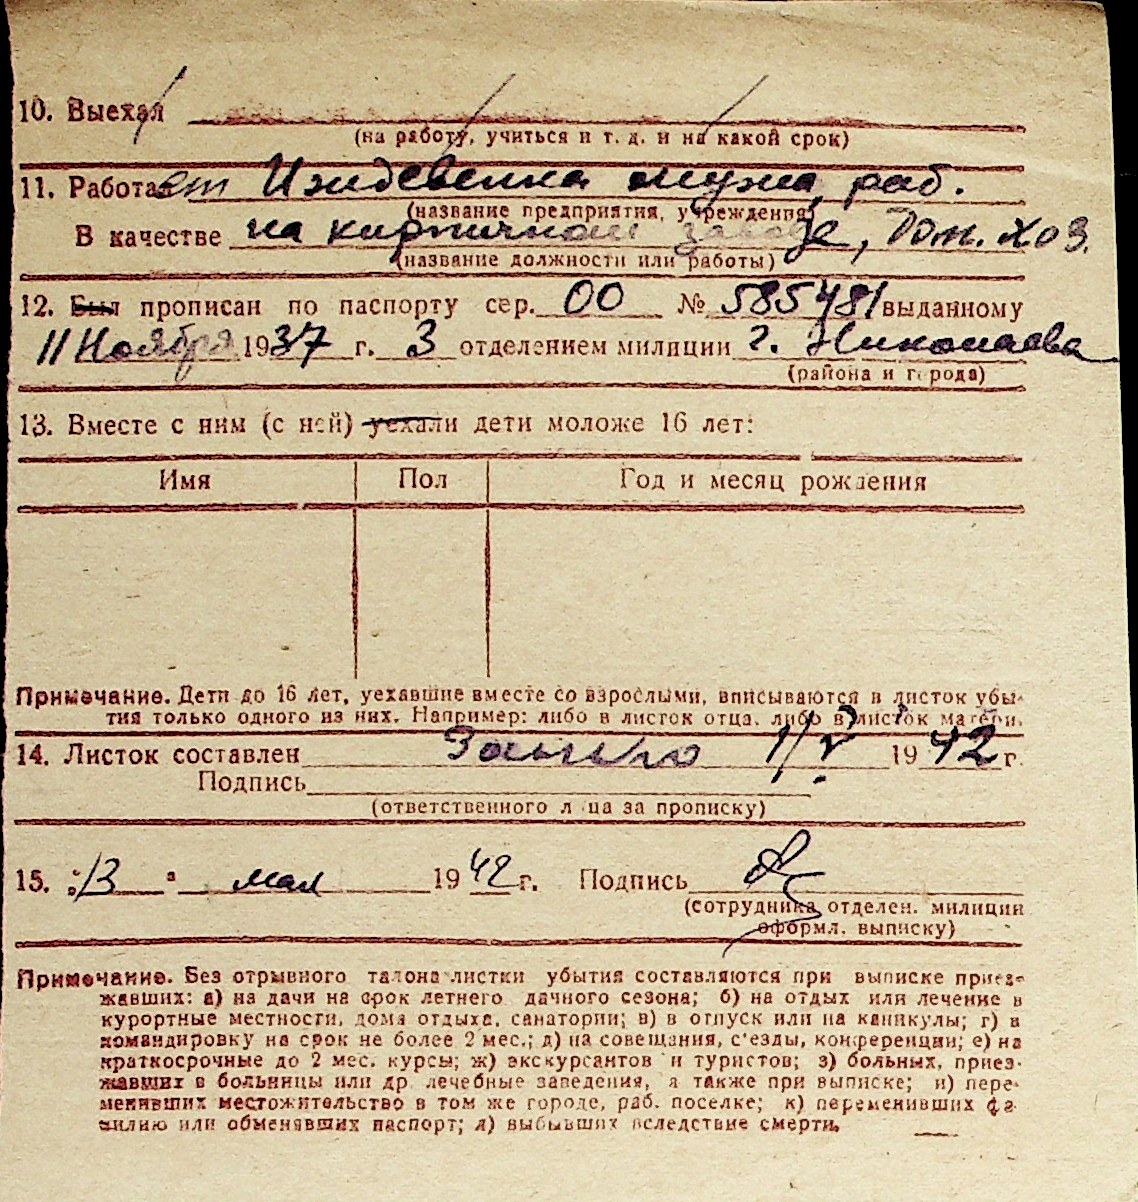 10. Выехал
(на работу, учиться и т. д. и на какой срок)
11. Работает Иждевенка мужа, раб.
(название предприятия, учреждения)
В качестве на кирпичном заводе, Дом. Хоз.
(название должности или работы)
12. Был прописан по паспорту сер. 00 № 585481 выданному
11 Ноября 1937 г. 3 отделением милиции г. Николаева
(района и города)
13. Вместе с ним (с ней) уехали дети моложе 16 лет:
Имя Пол Год и месяц рождения
Примечание. Дети до 16 лет, уехавшие вместе со взрослыми, вписываются в листок убы-
тия только одного из них. Например: либо в листок отца, либо в листок матери.
14. Листок составлен 1/V 1942 г.
Подпись
(ответственного лица за прописку)
15. "13" мая 1942 г. Подпись
(сотрудника отделен. милиции
оформл. выписку)
Примечание. Без отрывного талона листки убытия составляются при выписке приез-
жавших: а) на дачи на срок летнего дачного сезона; б) на отдых или лечение в
курортные местности, дома отдыха, санатории; в) в отпуск или на каникулы; г) в
командировку на срок не более 2 мес.; д) на совещания, с'езды, конференции; е) на
краткосрочные до 2 мес. курсы; ж) экскурсантов и туристов; з) больных, приез-
жавших в больницы или др лечебные заведения, а также при выписке; и) пере-
менивших местожительство в том же городе, раб. поселке; к) переменивших фа-
милию или обменявших паспорт; л) выбывших вследствие смерти.